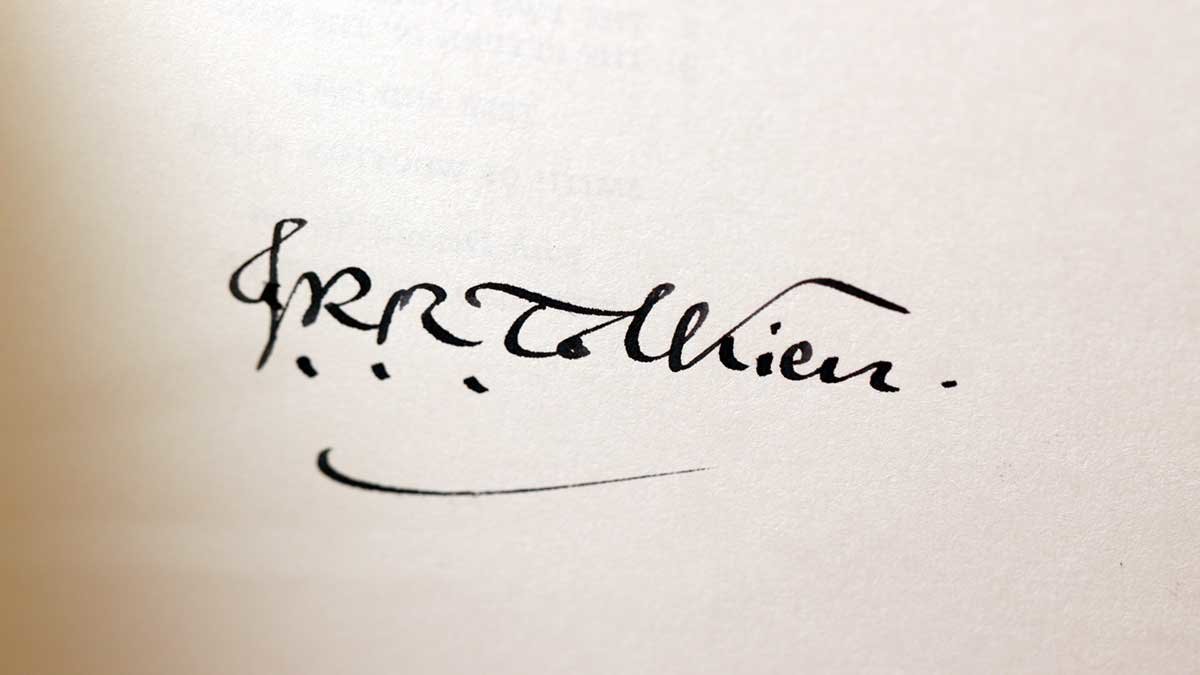 JRR Tolkien.